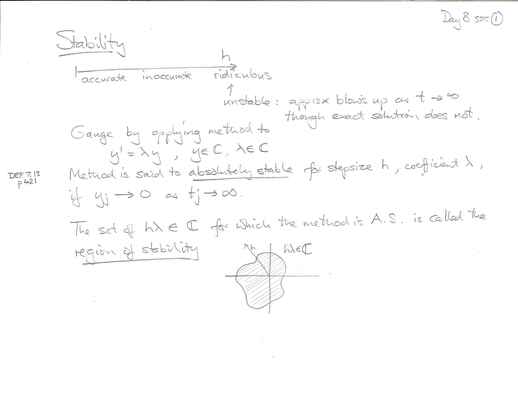 Day 8 sec ①
Stability
h
accurate inaccurate ridiculous
unstable: approx blows up as t → ∞
though exact solution does not.
Gauge by applying method to
y' = λy , y ∈ ℂ, λ ∈ ℂ
DEF 7.13 Method is said to absolutely stable for stepsize h, coefficient λ,
p421
if yj → 0 as tj → ∞.
The set of hλ ∈ ℂ for which the method is A.S. is called the
region of stability
hλ ∈ ℂ